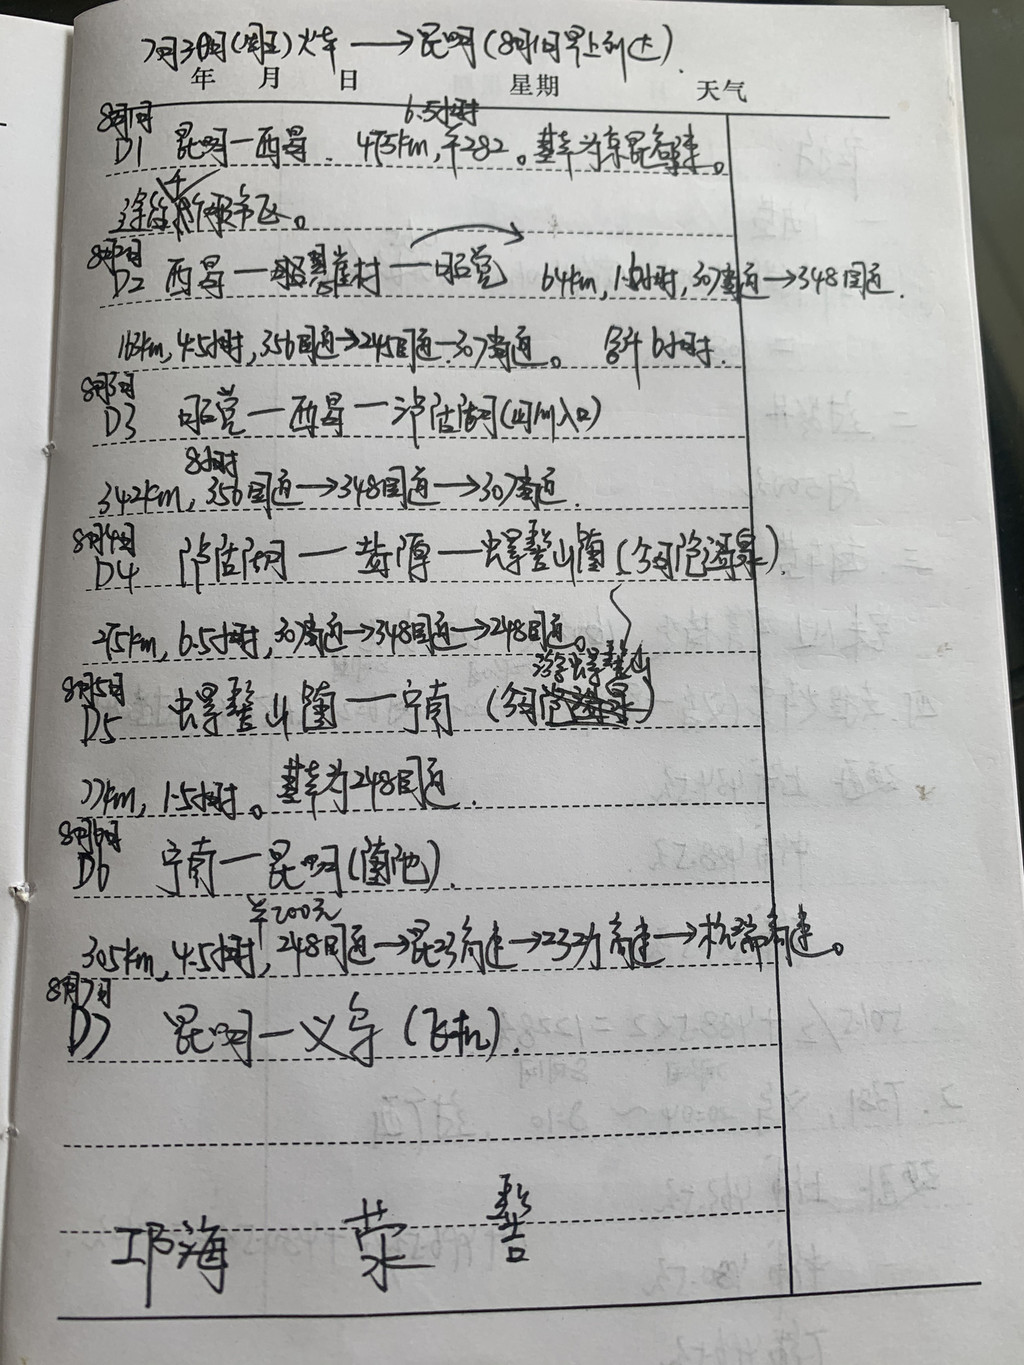 7月30日(周五)火车→昆明(8月1日早上到达).
年 月 日 星期 天气
8月1日 6.5小时
D1 昆明—西昌. 475km,¥282。基本为京昆高速。
8月2日
D2 西昌—昭觉悬崖村—昭觉 64km,1.6小时,307省道→348国道.
163km,4.5小时,356国道→245国道→307省道。合计6小时.
8月3日
D3 昭觉—西昌—泸沽湖(四川入口)
8小时
342km,356国道→348国道→307省道.
8月4日
D4 泸沽湖—盐源—螺髻山镇(今可泡温泉).
275km,6.5小时,307省道→348国道→248国道。
游完螺髻山
8月5日
D5 螺髻山镇—宁南(今可泡温泉)
77km,1.5小时。基本为248国道.
8月6日
D6 宁南—昆明(滇池).
¥200元
305km,4.5小时,248国道→昆巧高速→功高速→杭瑞高速。
8月7日
D7 昆明—义乌(飞机).
邛海 荥 髻